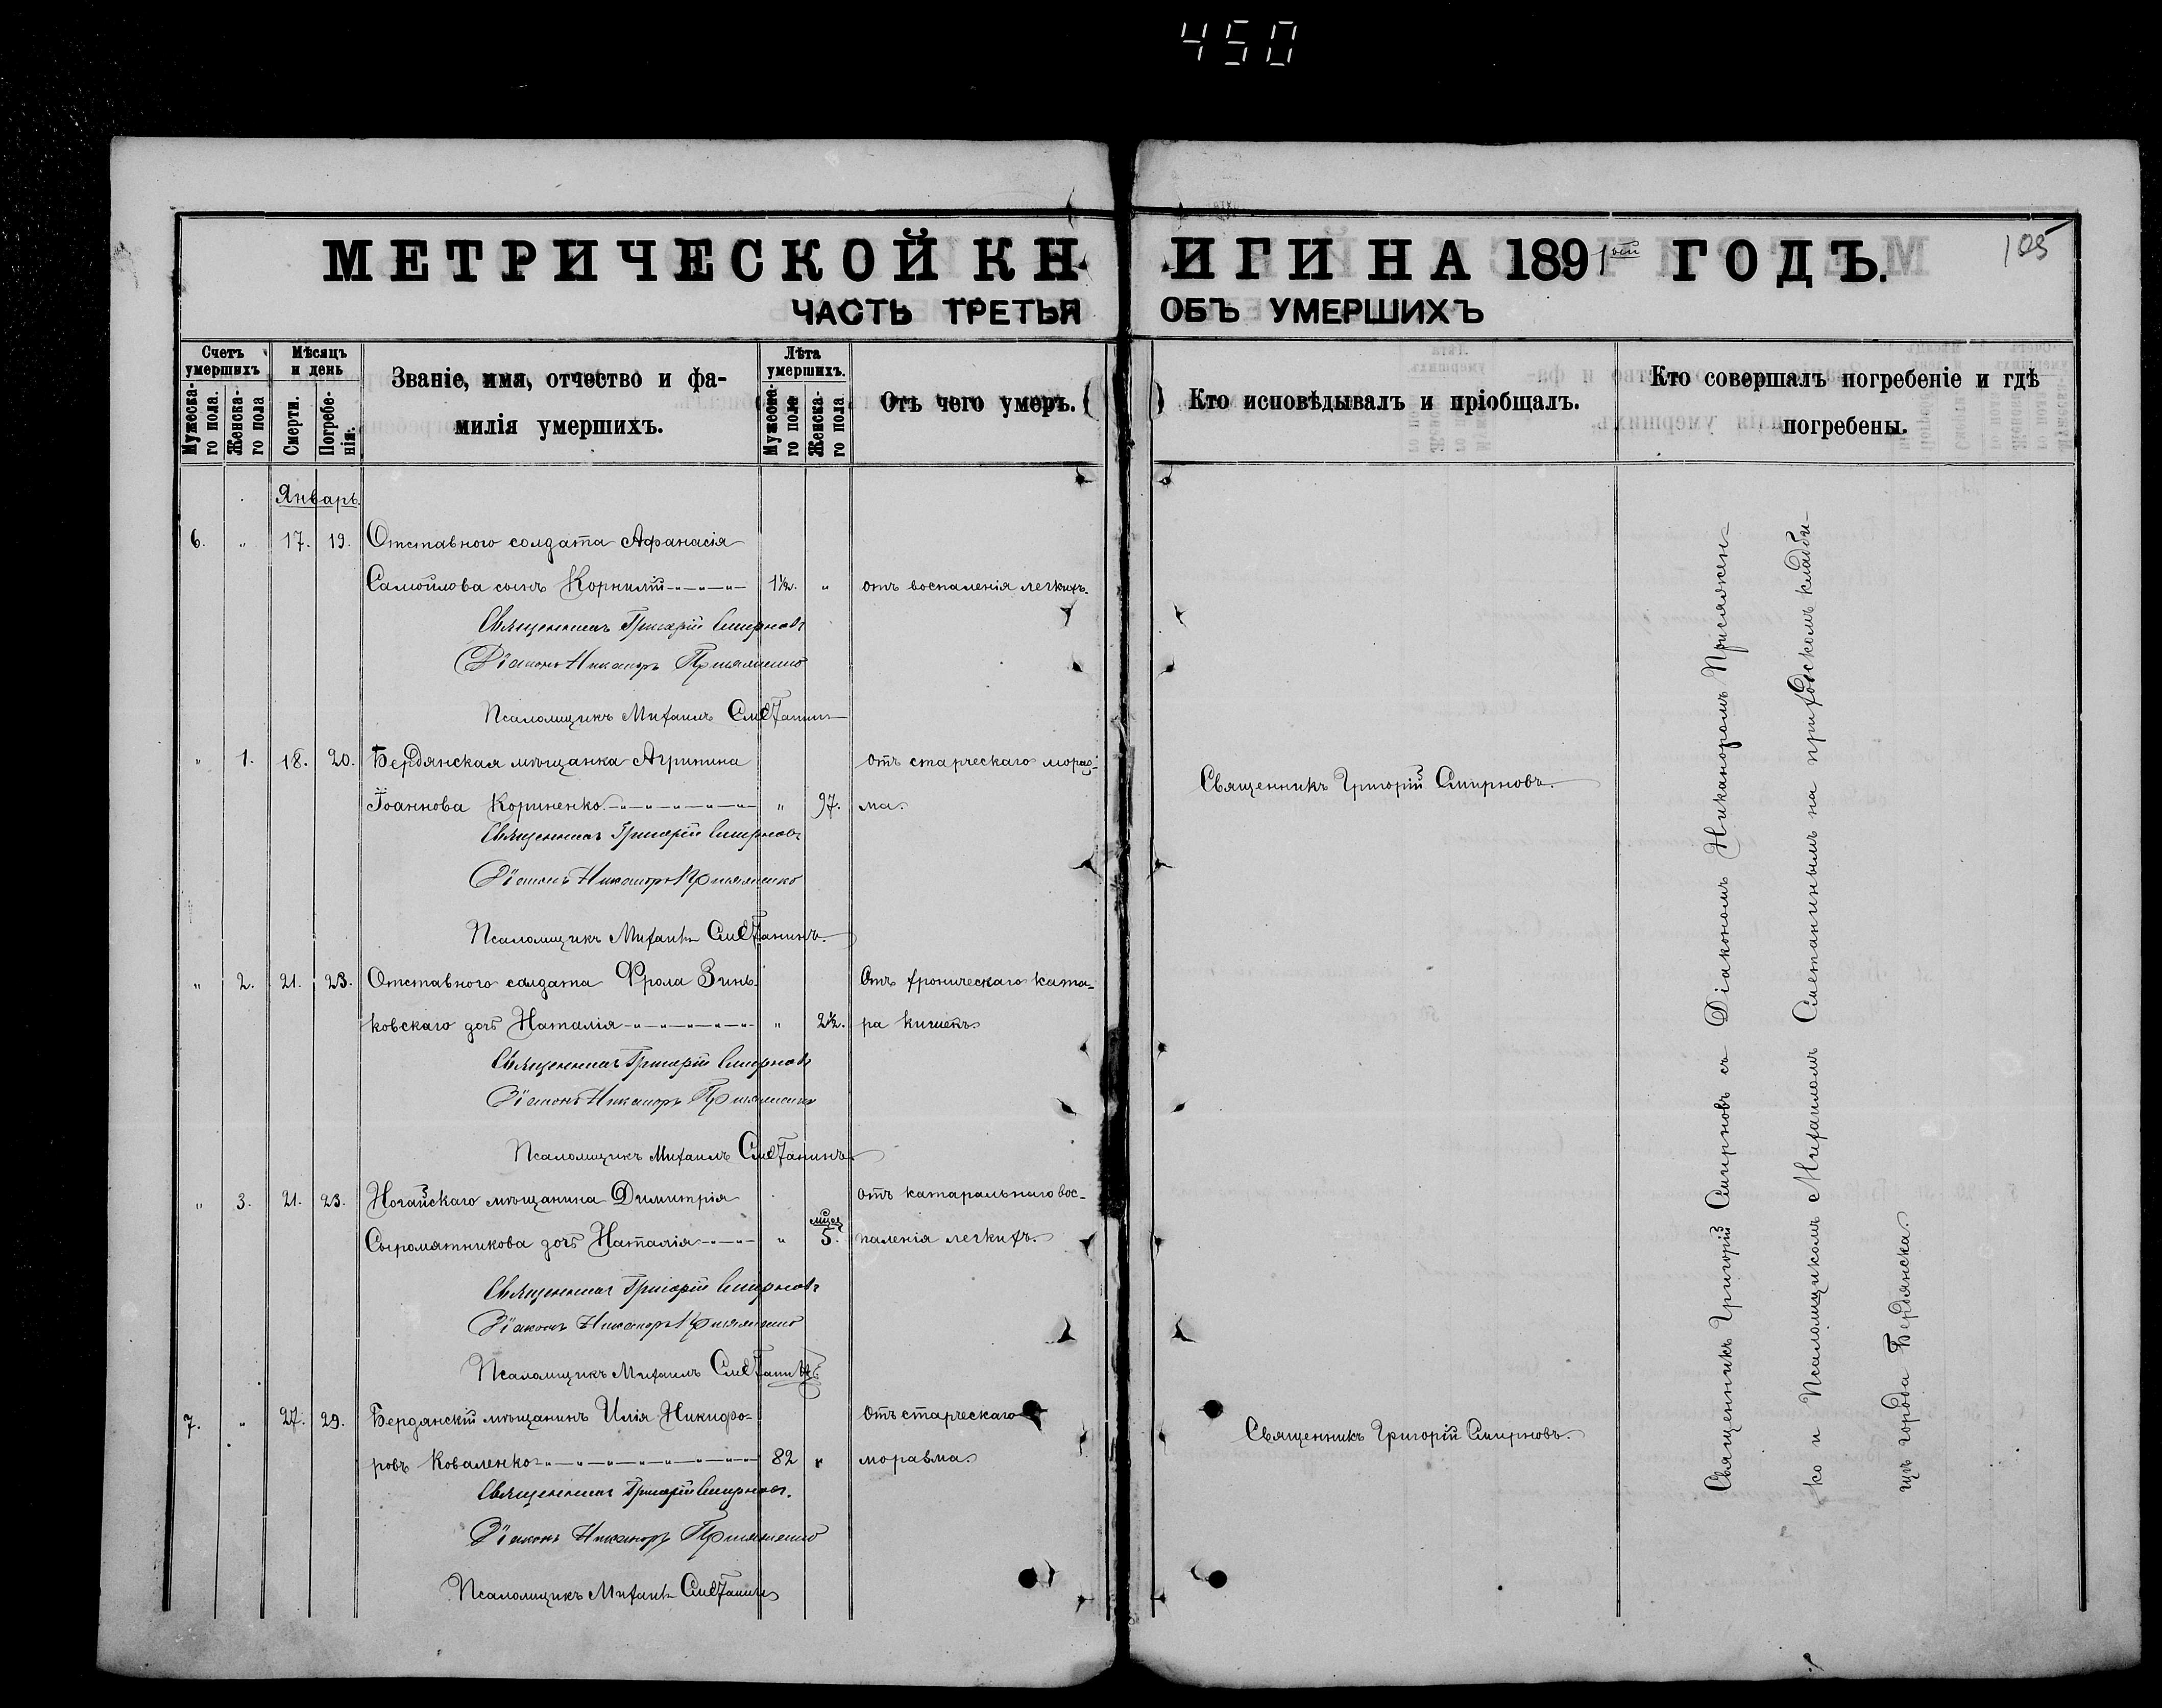 450
МЕТРИЧЕСКОЙ КНИГИ НА 1891ый ГОДЪ.
105
ЧАСТЬ ТРЕТЬЯ ОБЪ УМЕРШИХЪ
Счетъ умершихъ
Мужеска-го пола.
Женска-го пола
Мѣсяцъ и день
Смерти.
Погребе-нія.
Званіе, имя, отчество и фа-
милія умершихъ.
Лѣта умершихъ.
Мужеска-го пола
Женска-го пола
Отъ чего умеръ.
Кто исповѣдывалъ и пріобщалъ.
Кто совершалъ погребеніе и гдѣ
погребены.
Январь.
6. " 17. 19. Отставного солдата Афанасія
Самойлова сынъ Корнилій 1½. " отъ воспаленія легкихъ.
Священникъ Григорій Смирновъ
Діаконъ Никаноръ Присяженко
Псаломщикъ Михаилъ Сметанинъ
" 1. 18. 20. Бердянская мѣщанка Агрипина отъ старческаго мораз-
Іоаннова Кориненко " 97. ма.
Священникъ Григорій Смирновъ.
Священникъ Григорій Смирновъ
Діаконъ Никаноръ Присяженко
Псаломщикъ Михаилъ Сметанинъ.
" 2. 21. 23. Отставного солдата Фрола Зинь- Отъ хроническаго ката-
ковскаго дочь Наталія " 2½. ра кишекъ
Священникъ Григорій Смирновъ
Діаконъ Никаноръ Присяженко
Псаломщикъ Михаилъ Сметанинъ
" 3. 21. 23. Ногайскаго мѣщанина Димитрія отъ катаральнаго вос-
Сыромятникова дочь Наталія " мѣсец 5. паленія легкихъ.
Священникъ Григорій Смирновъ
Діаконъ Никаноръ Присяженко
Псаломщикъ Михаилъ Сметанинъ
7. " 27. 29. Бердянскій мѣщанинъ Илія Никифо- Отъ старческаго
ровъ Коваленко 82 " моразма.
Священникъ Григорій Смирновъ.
Священникъ Григорій Смирновъ.
Діаконъ Никаноръ Присяженко
Псаломщикъ Михаилъ Сметанинъ
Священникъ Григорій Смирновъ съ Діакономъ Никаноромъ Присяжен-
ко и Псаломщикомъ Михаиломъ Сметанинымъ на приходскомъ кладби-
щѣ города Бердянска.